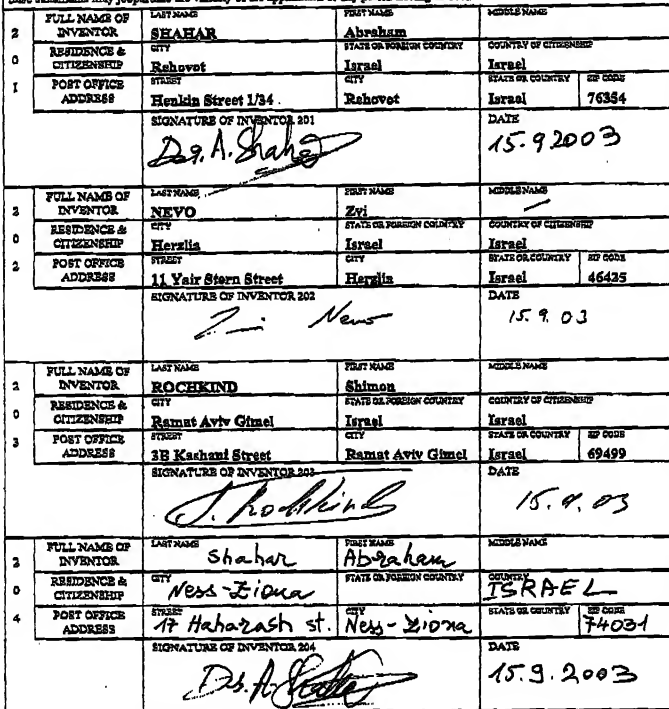 FULL NAME OF INVENTOR LAST NAME SHAHAR FIRST NAME Abraham MIDDLE NAME
2 0 1
RESIDENCE & CITIZENSHIP CITY Rehovot STATE OR FOREIGN COUNTRY Israel COUNTRY OF CITIZENSHIP Israel
POST OFFICE ADDRESS STREET Henkin Street 1/34 CITY Rehovot STATE OR COUNTRY Israel ZIP CODE 76354
SIGNATURE OF INVENTOR 201 DATE
Dr. A. Shahar 15.9 2003
FULL NAME OF INVENTOR LAST NAME NEVO FIRST NAME Zvi MIDDLE NAME
2 0 2
RESIDENCE & CITIZENSHIP CITY Herzlia STATE OR FOREIGN COUNTRY Israel COUNTRY OF CITIZENSHIP Israel
POST OFFICE ADDRESS STREET 11 Yair Stern Street CITY Herzlia STATE OR COUNTRY Israel ZIP CODE 46425
SIGNATURE OF INVENTOR 202 DATE
Nevo 15.9.03
FULL NAME OF INVENTOR LAST NAME ROCHKIND FIRST NAME Shimon MIDDLE NAME
2 0 3
RESIDENCE & CITIZENSHIP CITY Ramat Aviv Gimel STATE OR FOREIGN COUNTRY Israel COUNTRY OF CITIZENSHIP Israel
POST OFFICE ADDRESS STREET 3B Kashani Street CITY Ramat Aviv Gimel STATE OR COUNTRY Israel ZIP CODE 69499
SIGNATURE OF INVENTOR 203 DATE
S. Rochkind 15.9.03
FULL NAME OF INVENTOR LAST NAME Shahar FIRST NAME Abraham MIDDLE NAME
2 0 4
RESIDENCE & CITIZENSHIP CITY Ness-Ziona STATE OR FOREIGN COUNTRY COUNTRY ISRAEL
POST OFFICE ADDRESS STREET 17 Haharash st. CITY Ness-Ziona STATE OR COUNTRY ZIP CODE 74031
SIGNATURE OF INVENTOR 204 DATE
15.9.2003